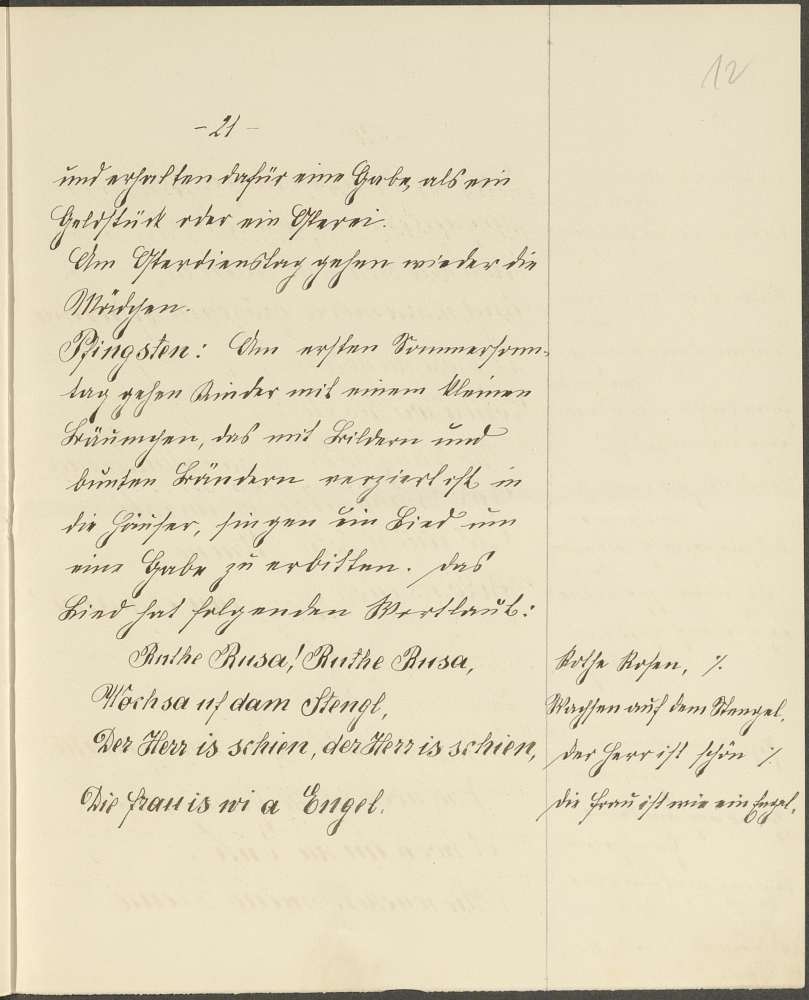 12
- 21 -
und erhalten dafür eine Gabe, als ein
Geldstück oder ein Osterei.
Am Osterdienstag gehen wieder die
Mädchen.
Pfingsten: Am ersten Sommersonn-
tag gehen Kinder mit einem kleinen
Bäumchen, das mit Bildern und
bunten Bändern verziert ist in
die Häuser, singen ein Lied um
eine Gabe zu erbitten. Das
Lied hat folgenden Wortlaut:
Ruthe Rusa! Ruthe Rusa,
Wochsa uf dam Stengl,
Der Herr is schien, der Herr is schien,
Die Frau is wi a Engel.
Rothe Rosen, ./.
Wachsen auf dem Stengel,
Der Herr ist schön ./.
Die Frau ist wie ein Engel.